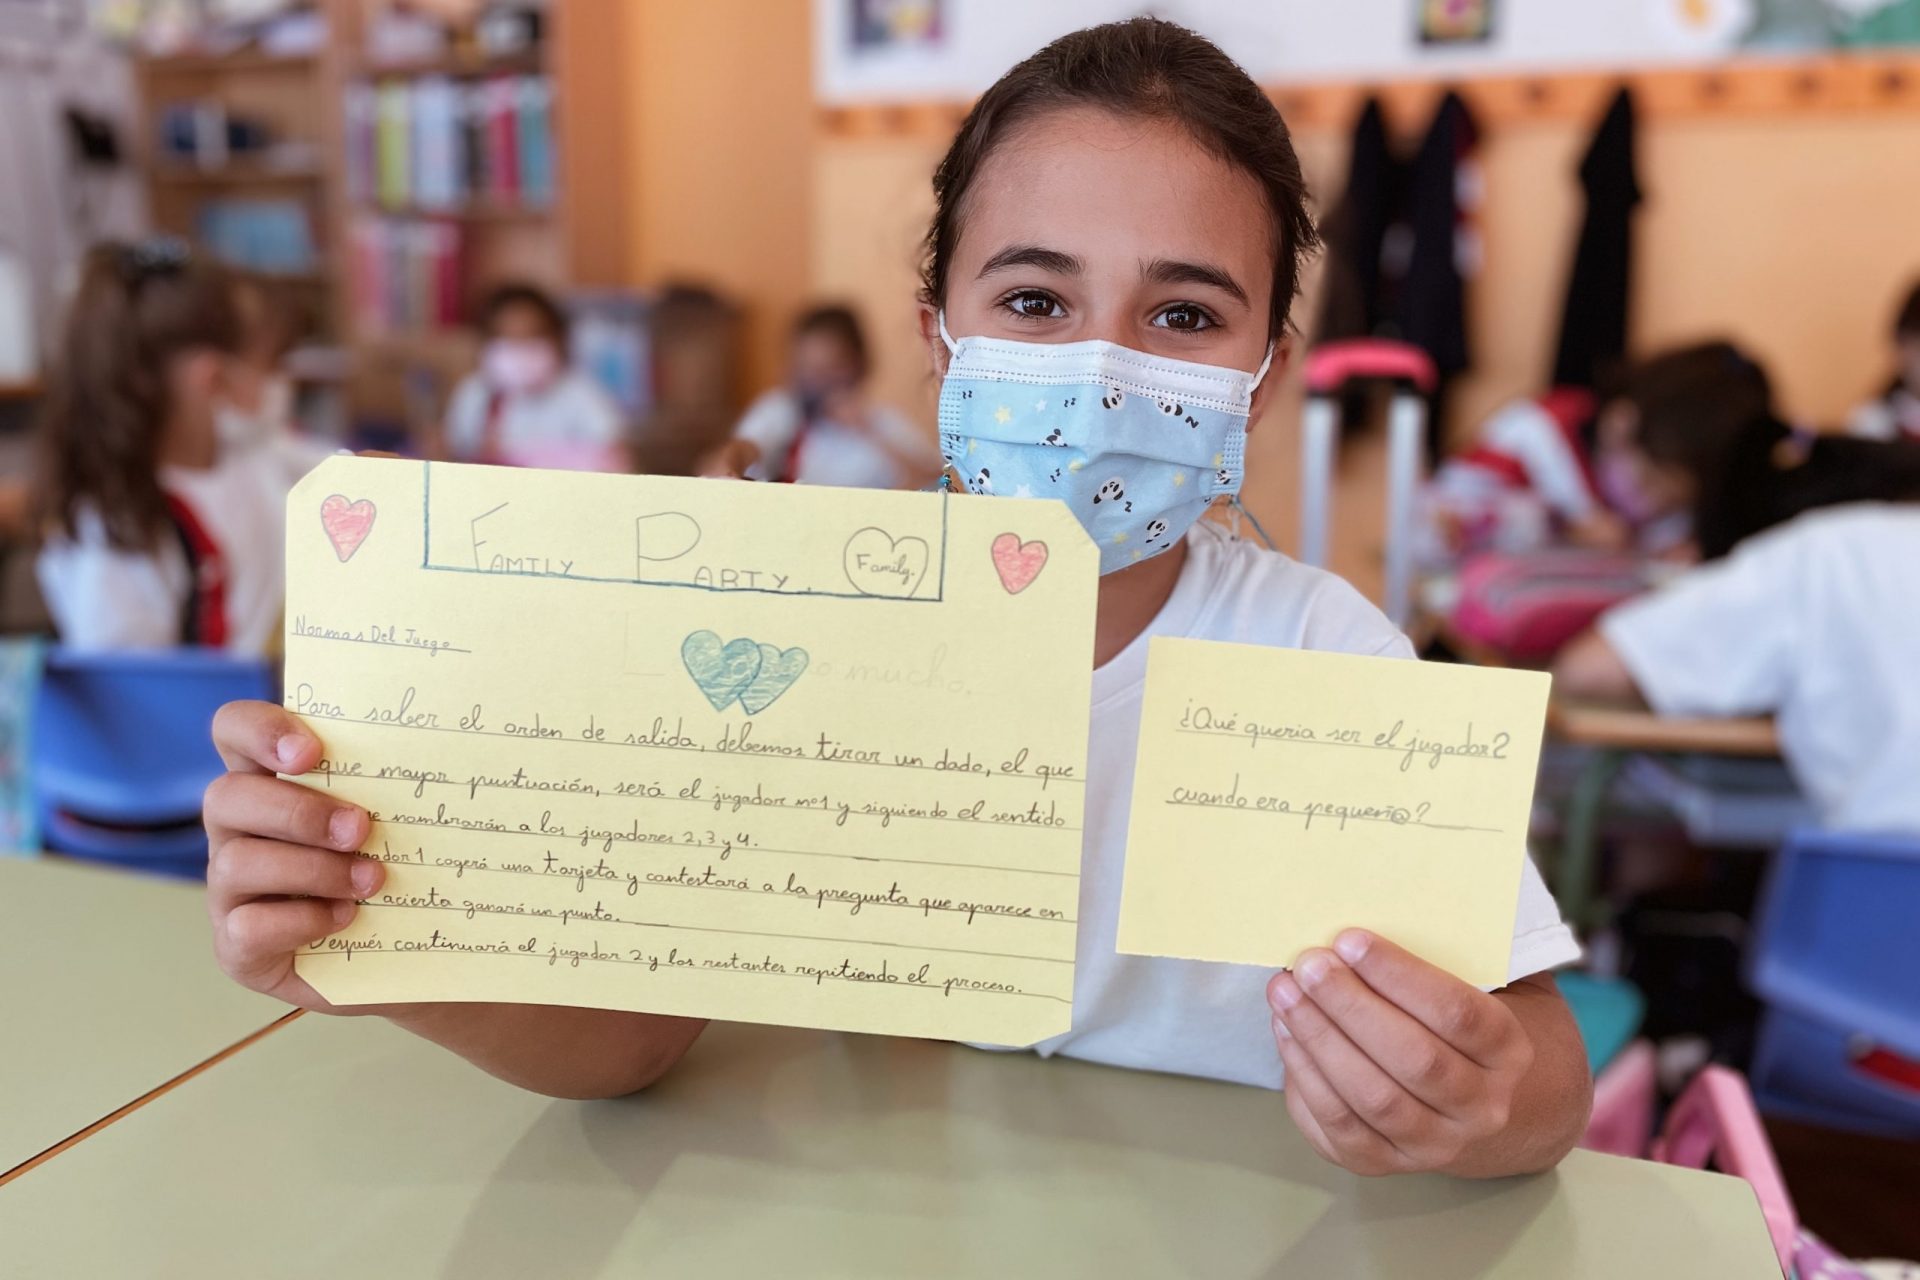 FAMILY PARTY. Family.
Normas Del Juego
mucho.
-Para saber el orden de salida, debemos tirar un dado, el que
que mayor puntuación, será el jugador nº1 y siguiendo el sentido
nombrarán a los jugadores 2, 3 y 4.
1 cogerá una tarjeta y contestará a la pregunta que aparece en
acierta ganará un punto.
Después continuará el jugador 2 y los restantes repitiendo el proceso.
¿Qué queria ser el jugador?
cuando era pequeñ@?